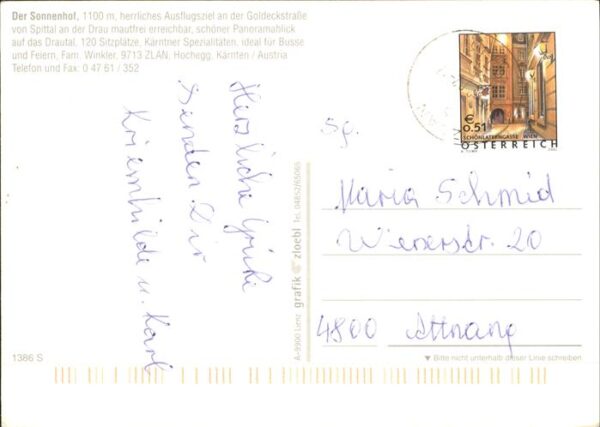 Der Sonnenhof, 1100 m, herrliches Ausflugsziel an der Goldeckstraße
von Spittal an der Drau mautfrei erreichbar, schöner Panoramablick
auf das Drautal, 120 Sitzplätze, Kärntner Spezialitäten, ideal für Busse
und Feiern, Fam. Winkler, 9713 ZLAN, Hochegg, Kärnten / Austria
Telefon und Fax: 0 47 61 / 352
Herzliche Grüße
senden Dir
Kriemhilde u. Karl
1386 S
A-9900 Lienz grafik zloebl Tel. 04852/65065
€
0.51
SCHÖNLATERNGASSE WIEN
ÖSTERREICH
Sg.
Maria Schmid
Wienerstr. 20
4800 Attnang
▼ Bitte nicht unterhalb dieser Linie schreiben